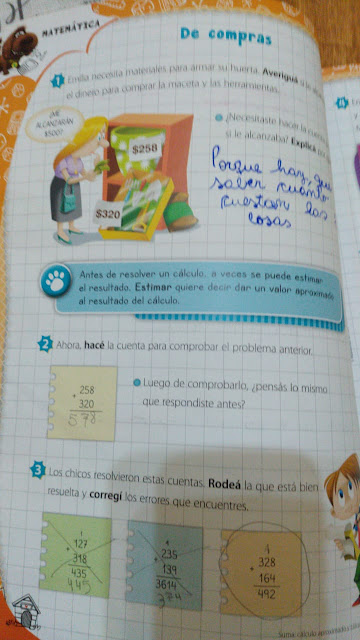 MATEMÁTICA
De compras
1 Emilia necesita materiales para armar su huerta. Averiguá si le
el dinero para comprar la maceta y las herramientas.
¿ME
ALCANZARÁN
$500?
$258
$320
¿Necesitaste hacer la cuenta
si le alcanzaba? Explicá
Porque hay que
saber cuanto
cuestan las
cosas
Antes de resolver un cálculo, a veces se puede estimar
el resultado. Estimar quiere decir dar un valor aproximado
al resultado del cálculo.
2 Ahora, hacé la cuenta para comprobar el problema anterior.
+ 258
320
578
Luego de comprobarlo, ¿pensás lo mismo
que respondiste antes?
3 Los chicos resolvieron estas cuentas. Rodeá la que está bien
resuelta y corregí los errores que encuentres.
1
+ 127
318
435
445
1
+ 235
139
3614
374
1
+ 328
164
492
Suma: cálculo aproximado